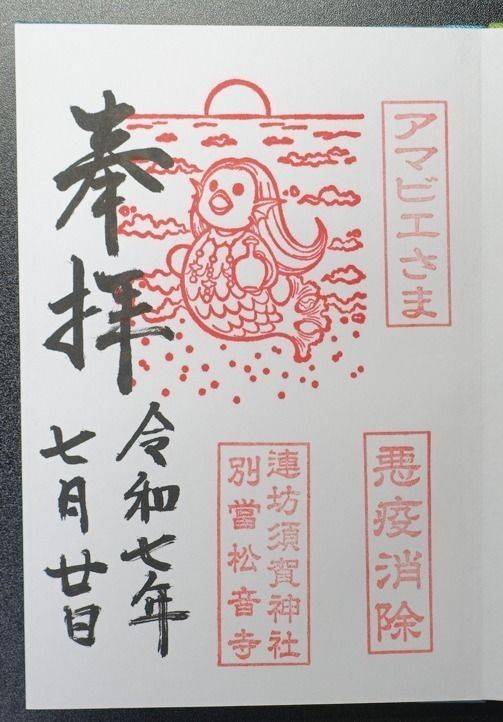 アマビエさま
悪疫消除
奉拝
連坊須賀神社
別當松音寺
令和七年
七月廿日